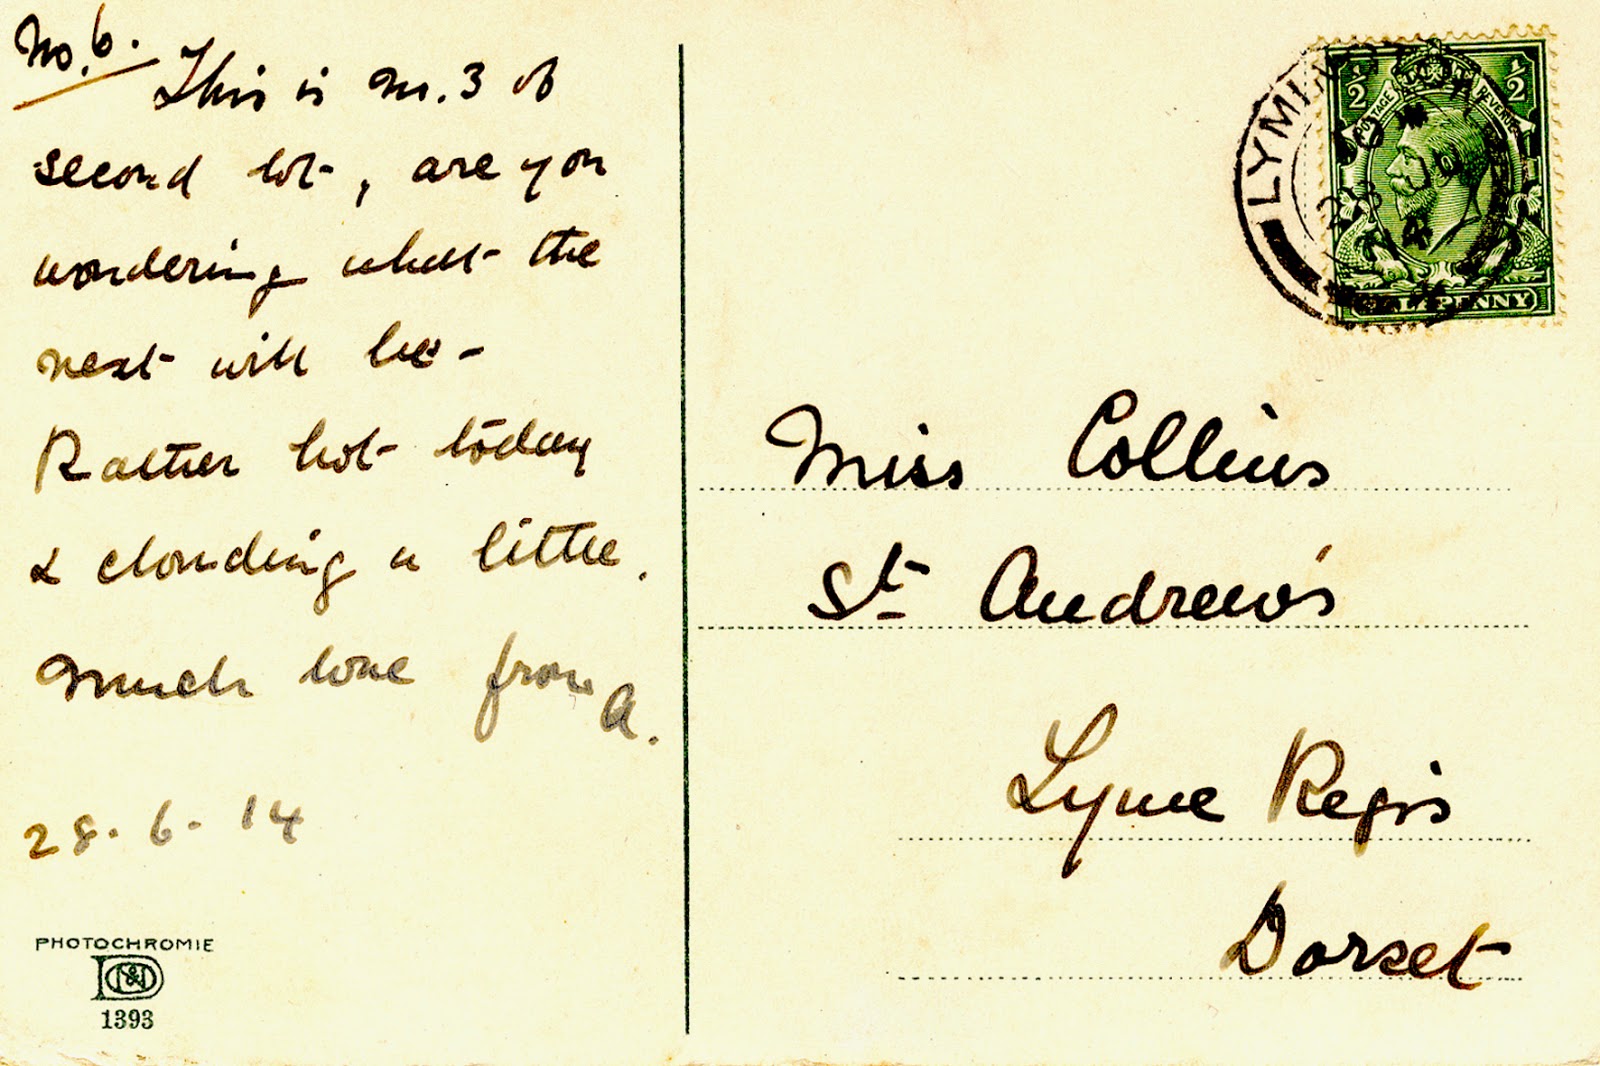 No. 6.
This is no. 3 of
second lot, are you
wondering what the
next will be -
Rather hot today
& clouding a little.
Much love from
A.
28. 6. 14
PHOTOCHROMIE
1393
LYMINGTON
½ ½
POSTAGE REVENUE
HALFPENNY
Miss Collins
St Andrew's
Lyme Regis
Dorset